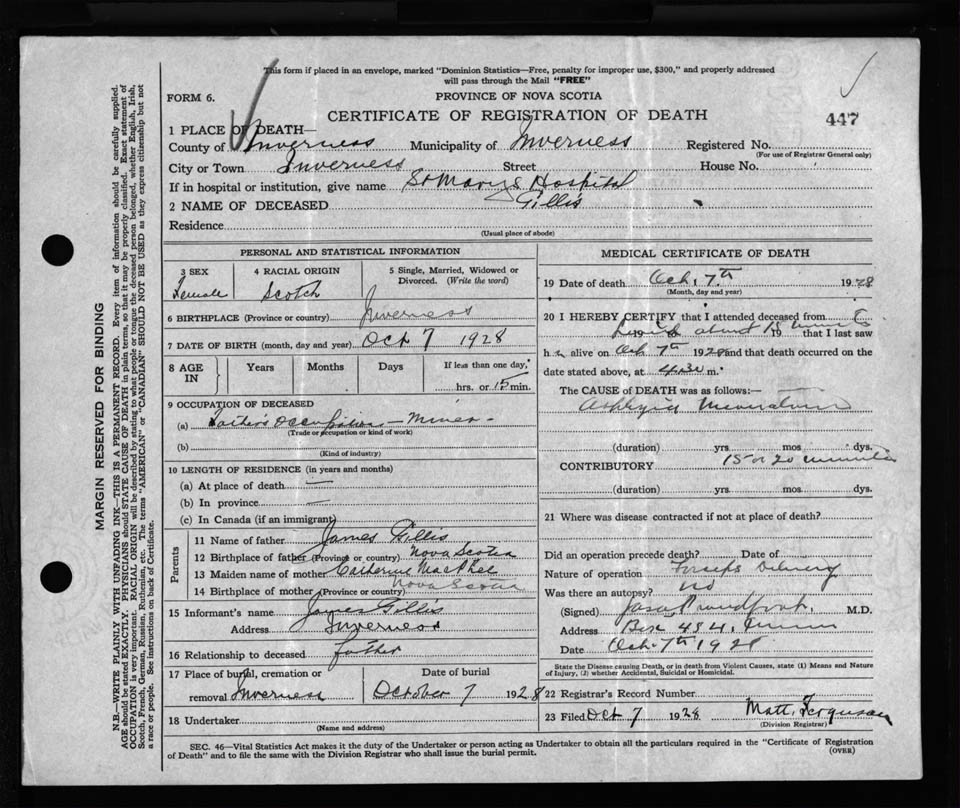 This form if placed in an envelope, marked "Dominion Statistics—Free, penalty for improper use, $300," and properly addressed
will pass through the Mail "FREE"
FORM 6.
PROVINCE OF NOVA SCOTIA
CERTIFICATE OF REGISTRATION OF DEATH
447
1 PLACE OF DEATH—
County of Inverness Municipality of Inverness Registered No.
(For use of Registrar General only)
City or Town Inverness Street House No.
If in hospital or institution, give name St Marys Hospital
2 NAME OF DECEASED Gillis
Residence
(Usual place of abode)
PERSONAL AND STATISTICAL INFORMATION
3 SEX 4 RACIAL ORIGIN 5 Single, Married, Widowed or Divorced. (Write the word)
Female Scotch
6 BIRTHPLACE (Province or country) Inverness
7 DATE OF BIRTH (month, day and year) Oct 7 1928
8 AGE IN Years Months Days If less than one day,
hrs. or 15 min.
9 OCCUPATION OF DECEASED
(a) Father's Occupation — Miner -
(Trade or occupation or kind of work)
(b)
(Kind of industry)
10 LENGTH OF RESIDENCE (in years and months)
(a) At place of death —
(b) In province —
(c) In Canada (if an immigrant)
Parents
11 Name of father James Gillis
12 Birthplace of father (Province or country) Nova Scotia
13 Maiden name of mother Catherine MacPhee
14 Birthplace of mother (Province or country) Nova Scotia
15 Informant's name James Gillis
Address Inverness
16 Relationship to deceased father
17 Place of burial, cremation or removal Inverness
Date of burial
October 7 1928
18 Undertaker
(Name and address)
MEDICAL CERTIFICATE OF DEATH
19 Date of death Oct. 7th 1928
(Month, day and year)
20 I HEREBY CERTIFY that I attended deceased from
Lived about 15 19 that I last saw
h alive on Oct 7th 1928 and that death occurred on the
date stated above, at 4.30 m.
The CAUSE of DEATH was as follows:—
(duration) yrs mos dys.
CONTRIBUTORY 15 or 20 minutes
(duration) yrs. mos. dys.
21 Where was disease contracted if not at place of death?
Did an operation precede death? Date of
Nature of operation Forceps Delivery
Was there an autopsy? No
(Signed) M.D.
Address Box 434,
Date Oct. 7th 1928
State the Disease causing Death, or in death from Violent Causes, state (1) Means and Nature
of Injury, (2) whether Accidental, Suicidal or Homicidal.
22 Registrar's Record Number
23 Filed Oct 7 1928 Matt. Ferguson
(Division Registrar)
SEC. 46—Vital Statistics Act makes it the duty of the Undertaker or person acting as Undertaker to obtain all the particulars required in the "Certificate of Registration
of Death" and to file the same with the Division Registrar who shall issue the burial permit.
(OVER)
MARGIN RESERVED FOR BINDING
N.B.—WRITE PLAINLY WITH UNFADING INK—THIS IS A PERMANENT RECORD. Every item of information should be carefully supplied.
AGE should be stated EXACTLY. PHYSICIANS should STATE CAUSE OF DEATH in plain terms, so that it may be properly classified. Exact statement of
OCCUPATION is very important. RACIAL ORIGIN will be described by stating to what people or tongue the deceased person belonged, whether English, Irish,
Scotch, French, German, Russian, Ruthenian, etc. The terms "AMERICAN" or "CANADIAN" SHOULD NOT BE USED as they express citizenship but not
a race or people. See instructions on back of Certificate.